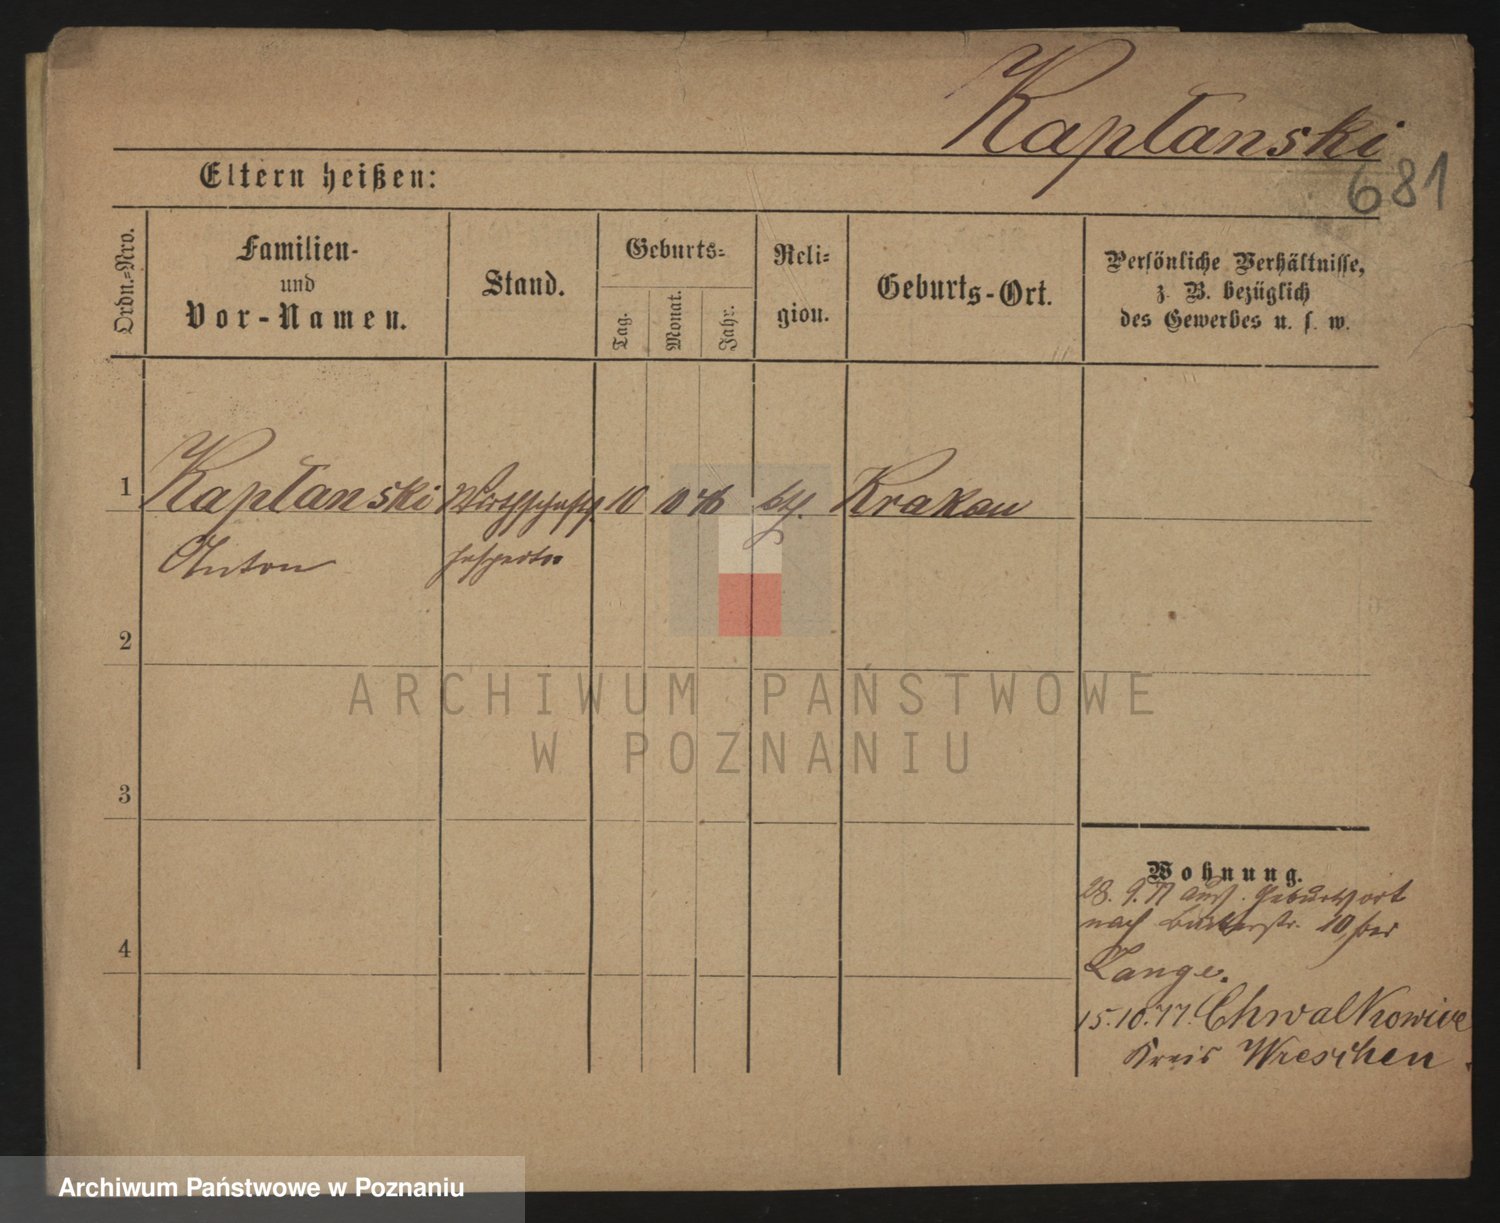 Kapłanski
681
Eltern heißen:
Ordn.-Nro.
Familien-
und
Vor-Namen.
Stand.
Geburts-
Tag.
Monat.
Jahr.
Reli-
gion.
Geburts-Ort.
Persönliche Verhältnisse,
z. B. bezüglich
des Gewerbes u. s. w.
1
Kapłanski
Wirthschafts
10
10
46
Krakau
Anton
Inspector
2
ARCHIWUM PAŃSTWOWE
W POZNANIU
3
Wohnung.
28. 9. 77 aus Geburtsort
nach 10, bei
4
Lange.
15. 10. 77. Chwalkowice
Kreis Wreschen
Archiwum Państwowe w Poznaniu